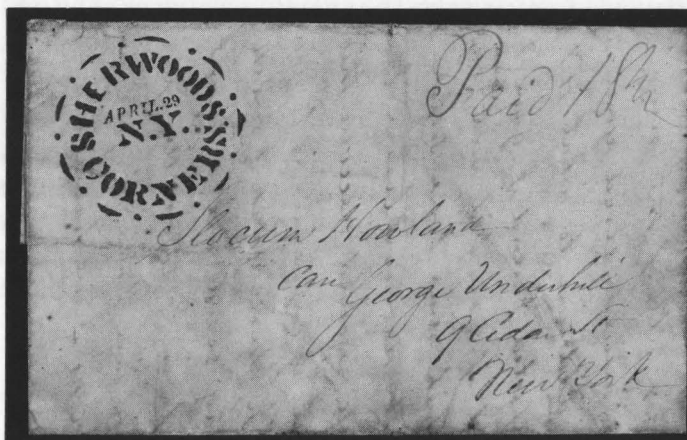 SHERWOODS
APRIL.29
N.Y.
CORNERS
Paid 18½
Slocum Howland
Care George Underhill
9 Cedar St
New York